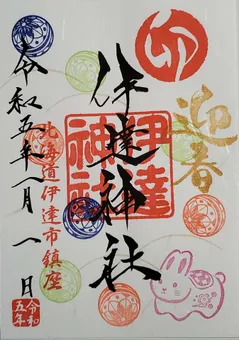 迎春
伊達神社
伊達
神社
北海道伊達市鎮座
令和五年一月一日
令和
五年